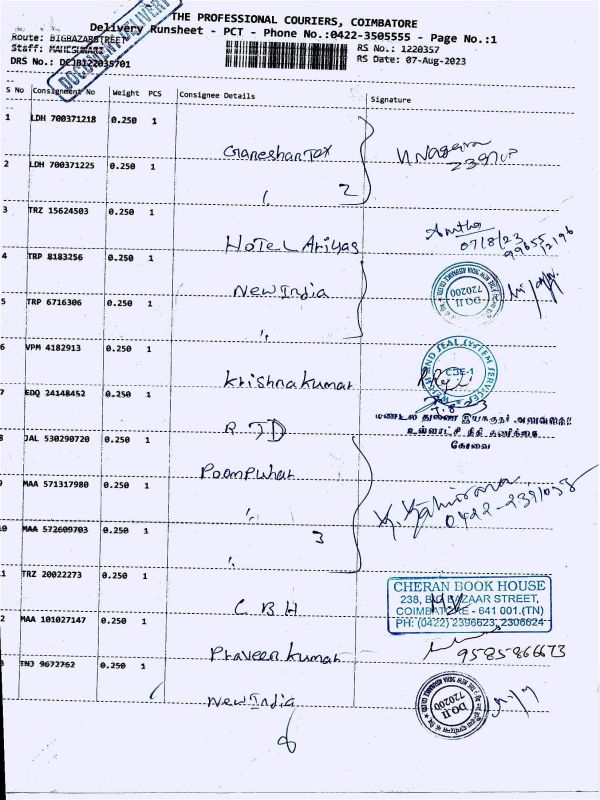 THE PROFESSIONAL COURIERS, COIMBATORE
Delivery Runsheet - PCT - Phone No.:0422-3505555 - Page No.:1
Route: BIGBAZARSTREET
Staff: MAHESWARI
DRS No.: DCJB122035701
RS No.: 1220357
RS Date: 07-Aug-2023
DOCUMENT DELIVERY
S No Consignment No Weight PCS Consignee Details Signature
1 LDH 700371218 0.250 1
Ganeshan Tex
2 LDH 700371225 0.250 1
2
3 TRZ 15624503 0.250 1
Hotel Ariyas
07/8/23
99655 2196
4 TRP 8183256 0.250 1
New India
DO.II
720200
5 TRP 6716306 0.250 1
6 VPM 4182913 0.250 1
Krishnakumar
SEAL SYSTEM SERVICES
CBE-1
7.8.23
7 EDQ 24148452 0.250 1
R J D
மண்டல துணை இயக்குநர் அலுவலகம்
உள்ளாட்சி நிதி தணிக்கை
கோவை
8 JAL 530290720 0.250 1
Poompuhar
9 MAA 571317980 0.250 1
10 MAA 572609703 0.250 1
3
11 TRZ 20022273 0.250 1
C B H
CHERAN BOOK HOUSE
238, BIG BAZAAR STREET,
COIMBATORE - 641 001.(TN)
PH: (0422) 2396623, 2306624
12 MAA 101027147 0.250 1
Praveen kumar
9585866673
13 TNJ 9672762 0.250 1
New India
DO.II
720200